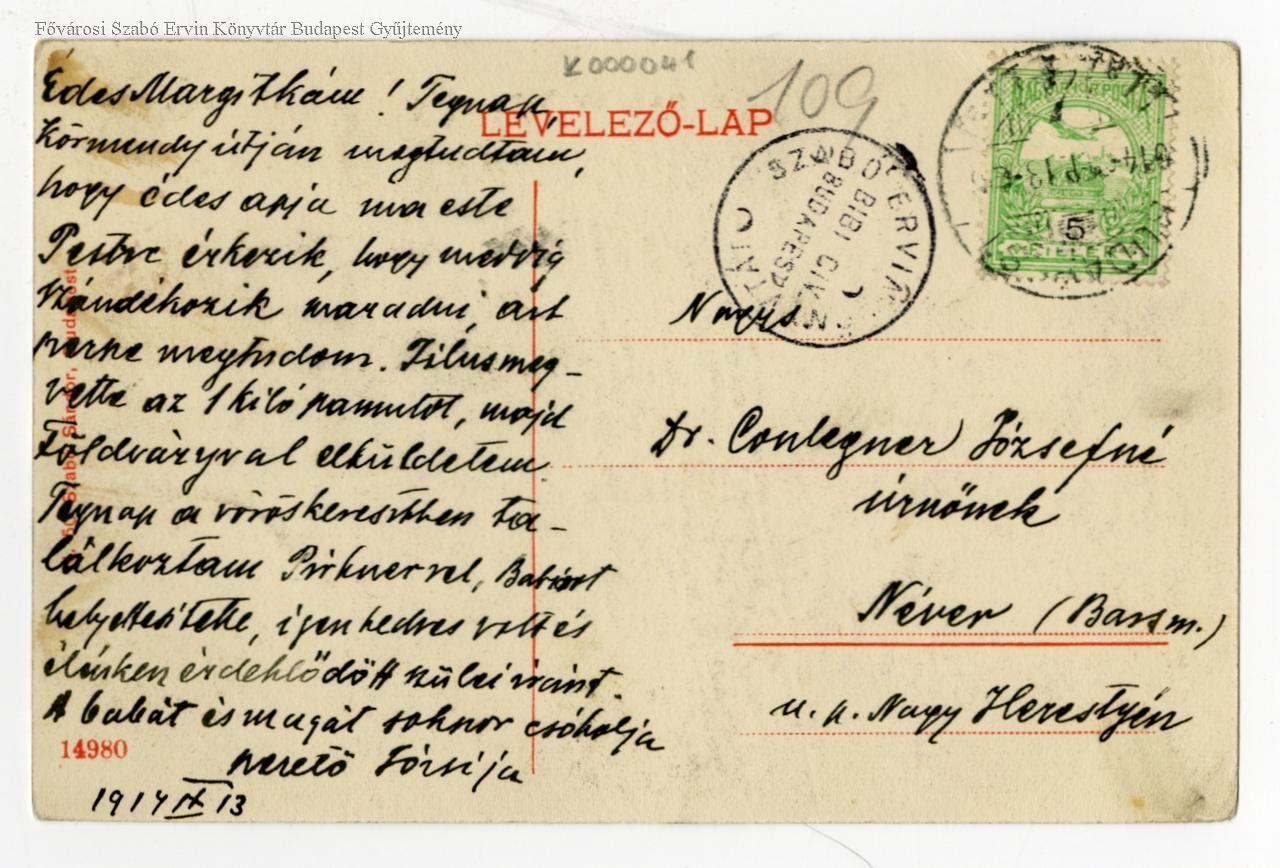 Fővárosi Szabó Ervin Könyvtár Budapest Gyűjtemény
K000041
109
LEVELEZŐ-LAP
Édes Margitkám! Tegnap
Körmendy útján megtudtam,
hogy édes apja ma este
Pestre érkezik, hogy meddig
szándékozik maradni, azt
persze megtudom. Filus meg-
vette az 1 kiló pamutot, majd
Földváryval elküldetem.
Tegnap a vöröskeresztben ta-
lálkoztam Pirknerrel,
helyettesítette, igen kedves volt és
élénken érdeklődött szülei iránt.
A babát és magát sokszor csókolja
szerető Józsija
1914 IX 13
14980
MAGYAR KIR. POSTA
5
SZABÓ ERVIN
BUDAPEST
Nagys
Dr. Conlegner Józsefné
úrnőnek
Néver (Barsm.)
u. p. Nagy Herestyén